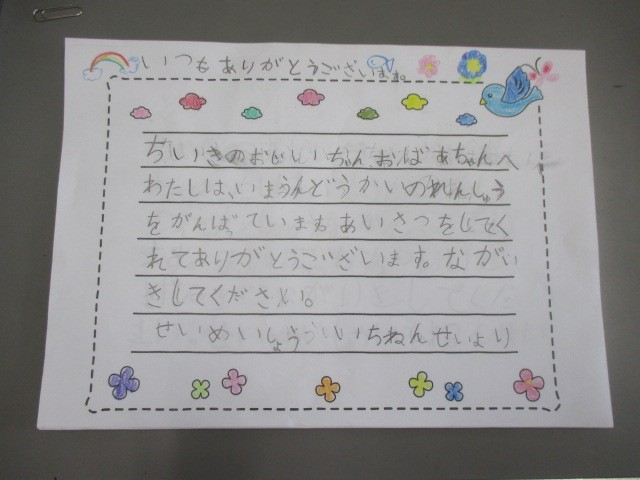 いつもありがとうございます。
ちいきのおじいちゃんおばあちゃんへ
わたしは、いまうんどうかいのれんしゅう
をがんばっていますあいさつをしてく
れてありがとうございます。ながい
きしてください。
せいめいしょういちねんせいより